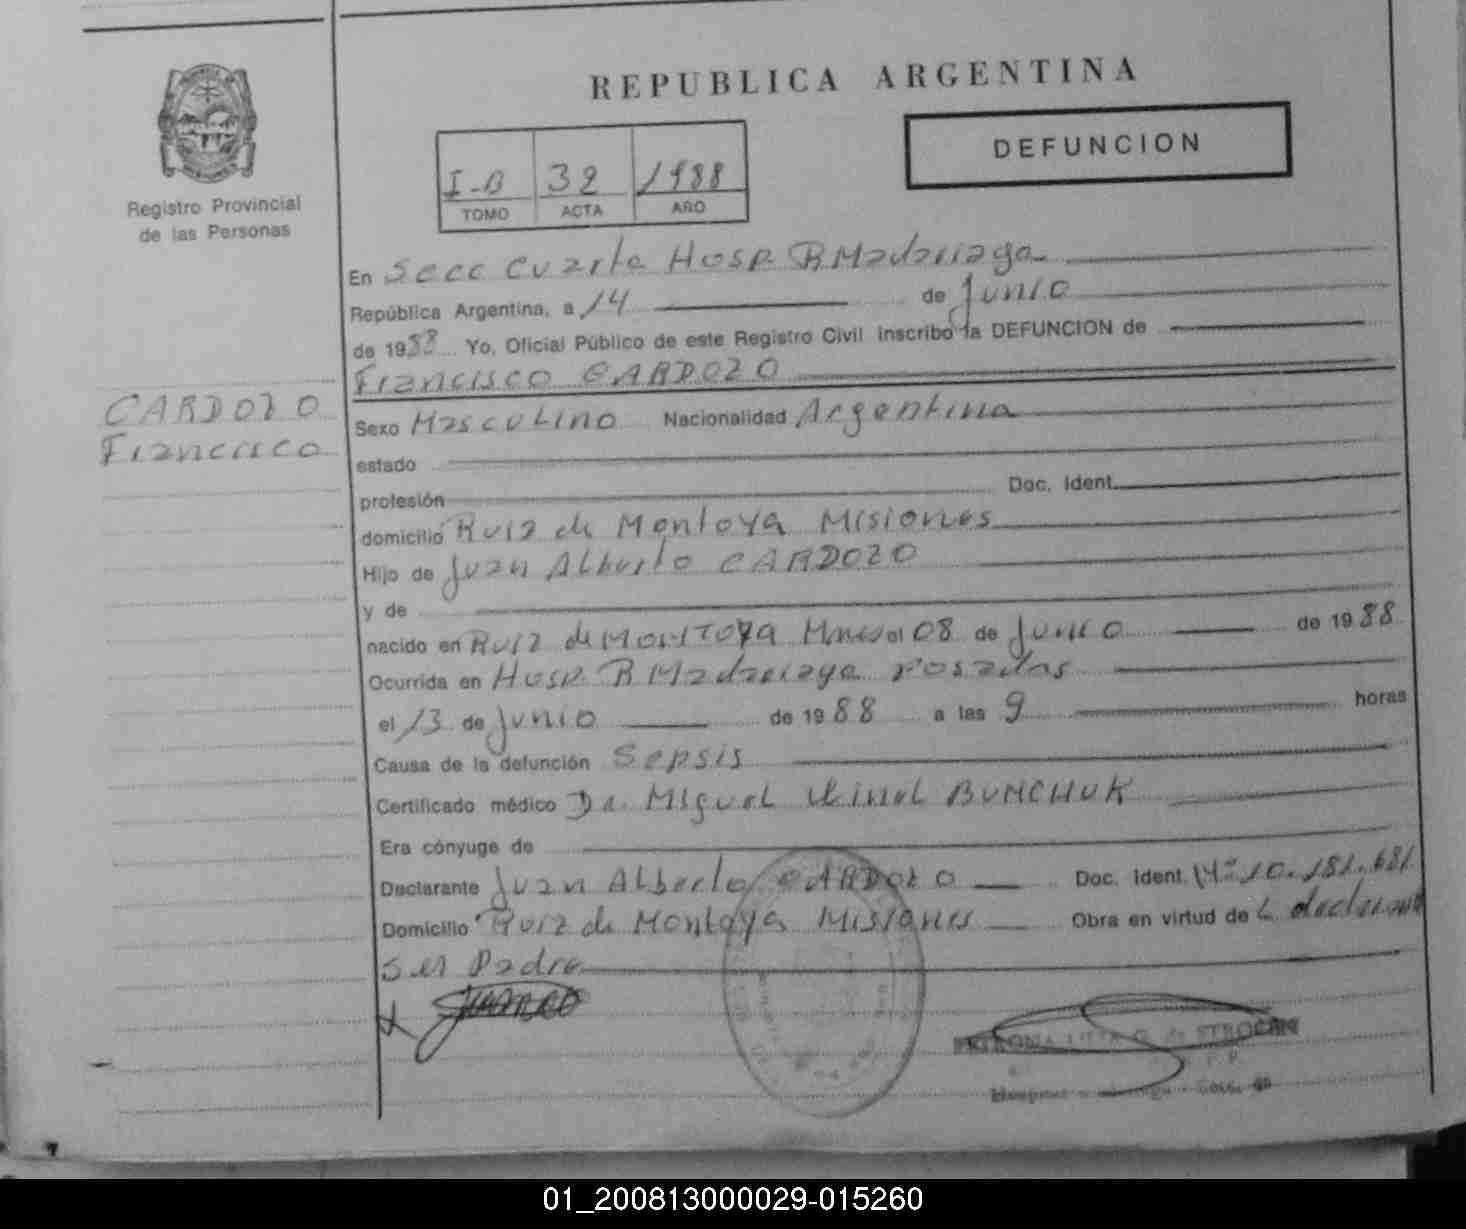 REPUBLICA ARGENTINA
DEFUNCION
I-B 32 1988
TOMO ACTA AÑO
Registro Provincial
de las Personas
En Secc Cuarta Hosp. R Madariaga
República Argentina, a 14 de Junio
de 1988 Yo, Oficial Público de este Registro Civil inscribo la DEFUNCION de
Francisco CARDOZO
CARDOZO
Francisco
Sexo Masculino Nacionalidad Argentina
estado
profesión Doc. Ident.
domicilio Ruiz de Montoya Misiones
Hijo de Juan Alberto CARDOZO
y de
nacido en Ruiz de MONTOYA el 08 de Junio de 1988
Ocurrida en Hosp. R Madariaga Posadas
el 13 de Junio de 1988 a las 9 horas
Causa de la defunción Sepsis
Certificado médico Dr. Miguel BUMCHUK
Era cónyuge de
Declarante Juan Alberto CARDOZO Doc. Ident. Nº 10.181.681
Domicilio Ruiz de Montoya Misiones Obra en virtud de
ser Padre
STROCEN
7
01_200813000029-015260